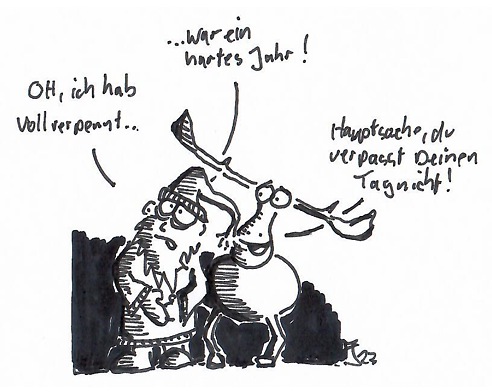 ...war ein
hartes Jahr!
Oh, ich hab
voll verpennt...
Hauptsache, du
verpasst Deinen
Tag nicht!